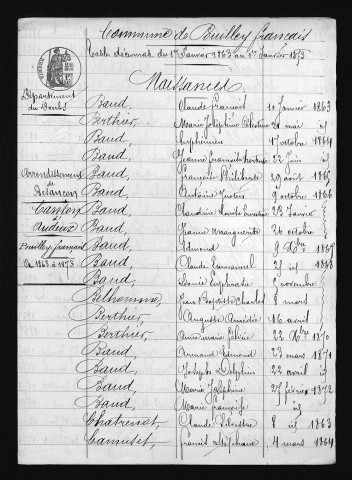 Commune de Pouilley français
Table décennale du 1er Janvier 1863 au 1er Janvier 1873
Naissances
Département
du Doubs
Arrondissement
de
Besançon
Canton
Audeux
Pouilley français
De 1863 à 1873.
Baud, Claude François 10 Janvier 1863
Berthier, Marie Joséphine Célestine 21 mai id
Baud, 17 octobre 1864
Baud, Jeanne 22 Juin id
Baud, François Philibert 29 août 1865
Baud, Antoine 9 octobre 1866
Baud, Claudine 26 Janvier
Baud, Jeanne Marguerite 20 octobre id
Baud, Edmond 9 Xbre 1867
Baud, Claude Emmanuel 25 id 1868
Baud, Louise 2 novembre
Belhomme, Jean Baptiste Charles 8 mars
Berthier, Auguste Amédée 16 avril
Berthier, 22 Xbre 1870
Baud, Armand Edmond 23 mars 1871
Baud, Joseph Delphin 22 avril id
Baud, Marie Joséphine 25 février 1872
Baud, Marie françoise id
Chatrenet, Claude Silvestre 8 id 1863
Camuset, francis Stéphane 4 mars 1864